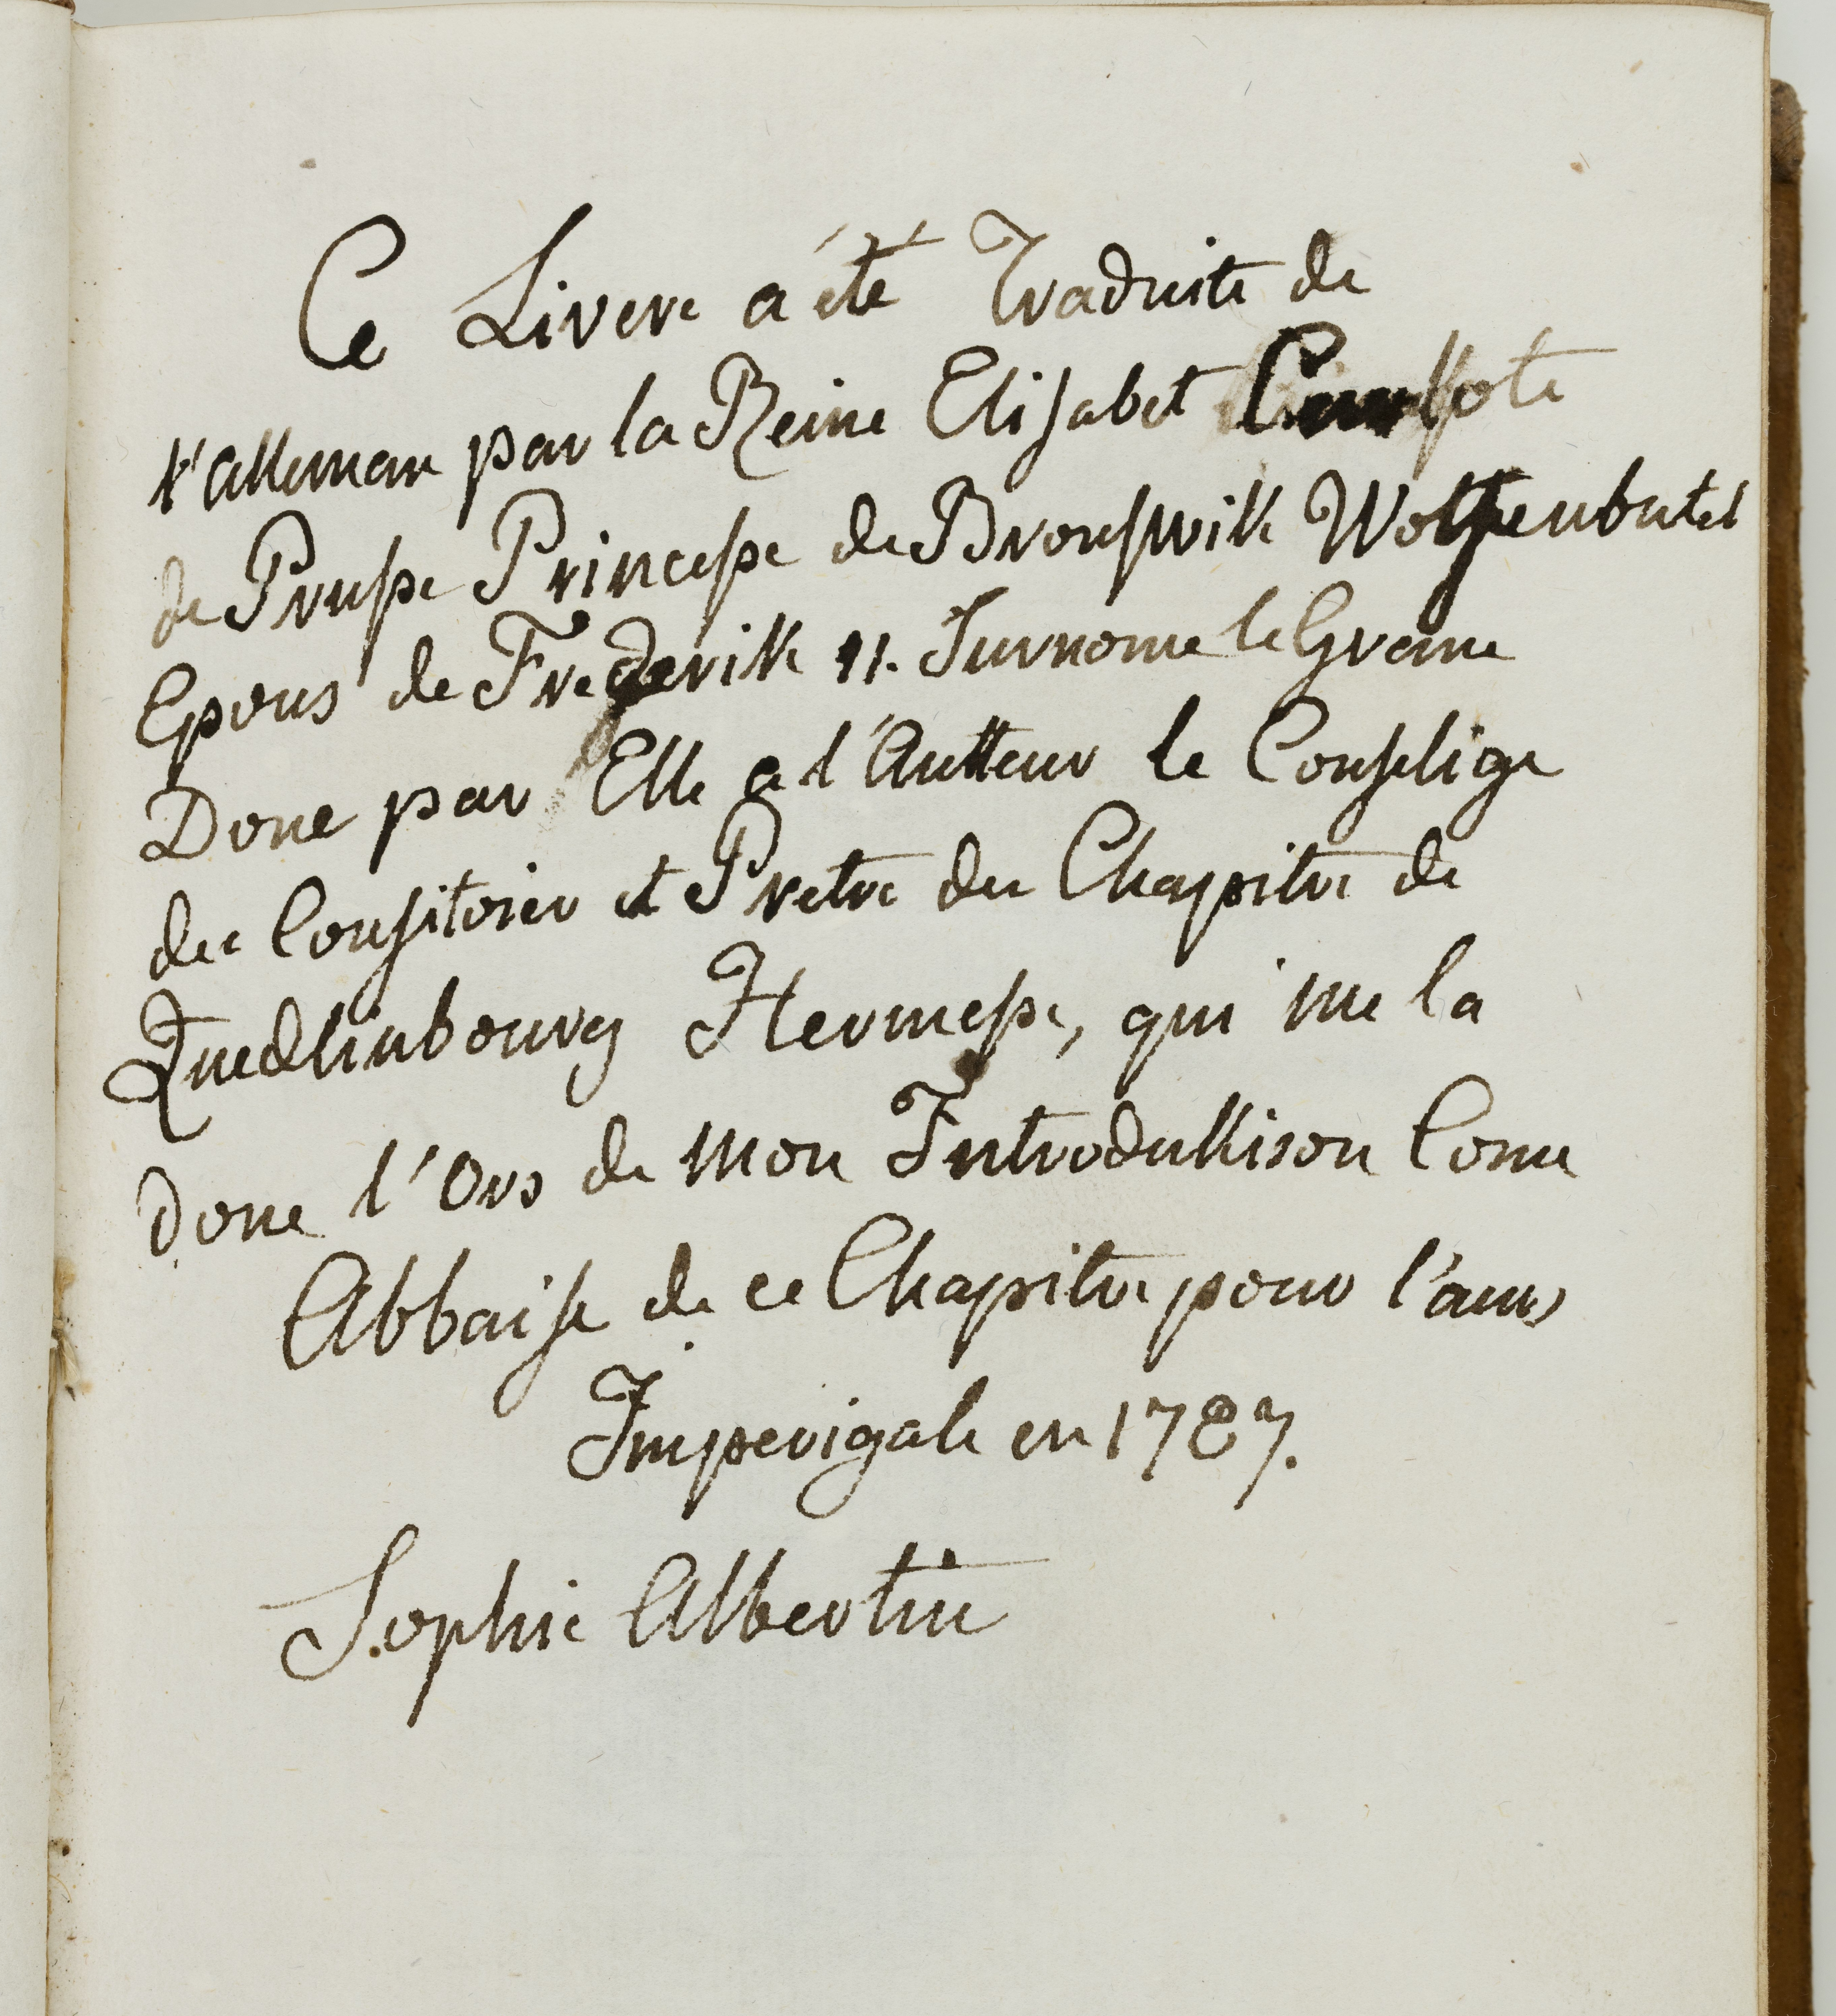 Ce Livere a été Traduite de
l'alleman par la Reine Elisabet
de Prusse Princesse de Brouswik Wolfenbutel
Epous de Frederik II. Surnome le Grane
Done par Elle a l'Autteur le Conselige
du Consitoier et Pretre du Chapitre de
Quedlinbourg Hermesse, qui me la
done l'Ors de mon Introdukkison Come
Abbaise de ce Chapitre pour l'aurs
Imperigale en 1787.
Sophie Albertine